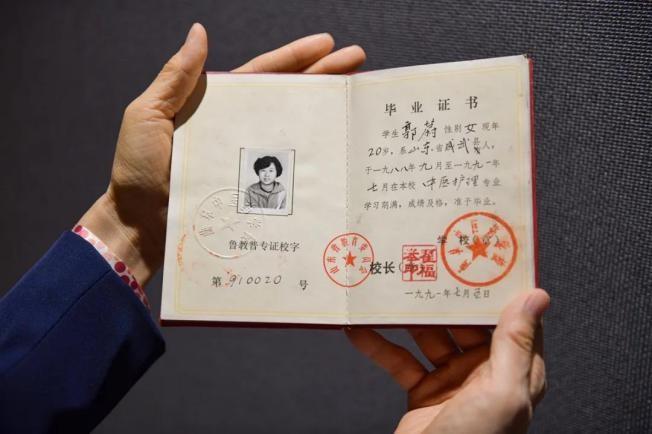 鲁教普专证校字
第 910020 号
山东省教育委员会
毕业证书
学生 郭蔚 性别 女 现年
20岁，系山东省成武县人，
于一九八八年九月至一九九一年
七月在本校 中医护理 专业
学习期满，成绩及格，准予毕业。
学 校
校长
一九九一年七月 日